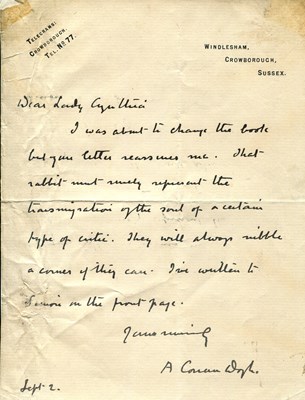 TELEGRAMS:
CROWBOROUGH.
TEL. No 77.
WINDLESHAM,
CROWBOROUGH,
SUSSEX.
Dear Lady Cynthia
I was about to change the book
but your letter reassures me. That
rabbit must surely represent the
transmigration of the soul of a certain
type of critic. They will always nibble
a corner if they can. I've written to
on the front page.
Yours sincerely
A Conan Doyle.
Sept 2.